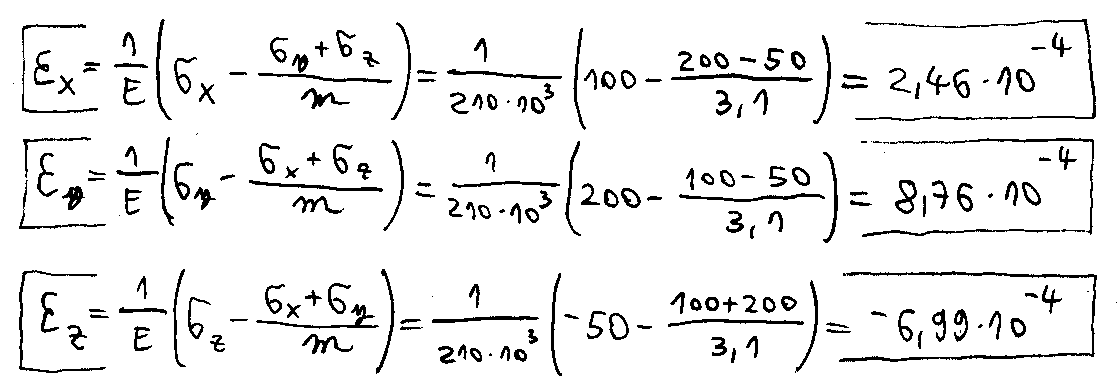 εx = 1/E (σx − (σy + σz)/m) = 1/(210·10³) (100 − (200 − 50)/3,1) = 2,46·10⁻⁴
εy = 1/E (σy − (σx + σz)/m) = 1/(210·10³) (200 − (100 − 50)/3,1) = 8,76·10⁻⁴
εz = 1/E (σz − (σx + σy)/m) = 1/(210·10³) (−50 − (100 + 200)/3,1) = −6,99·10⁻⁴